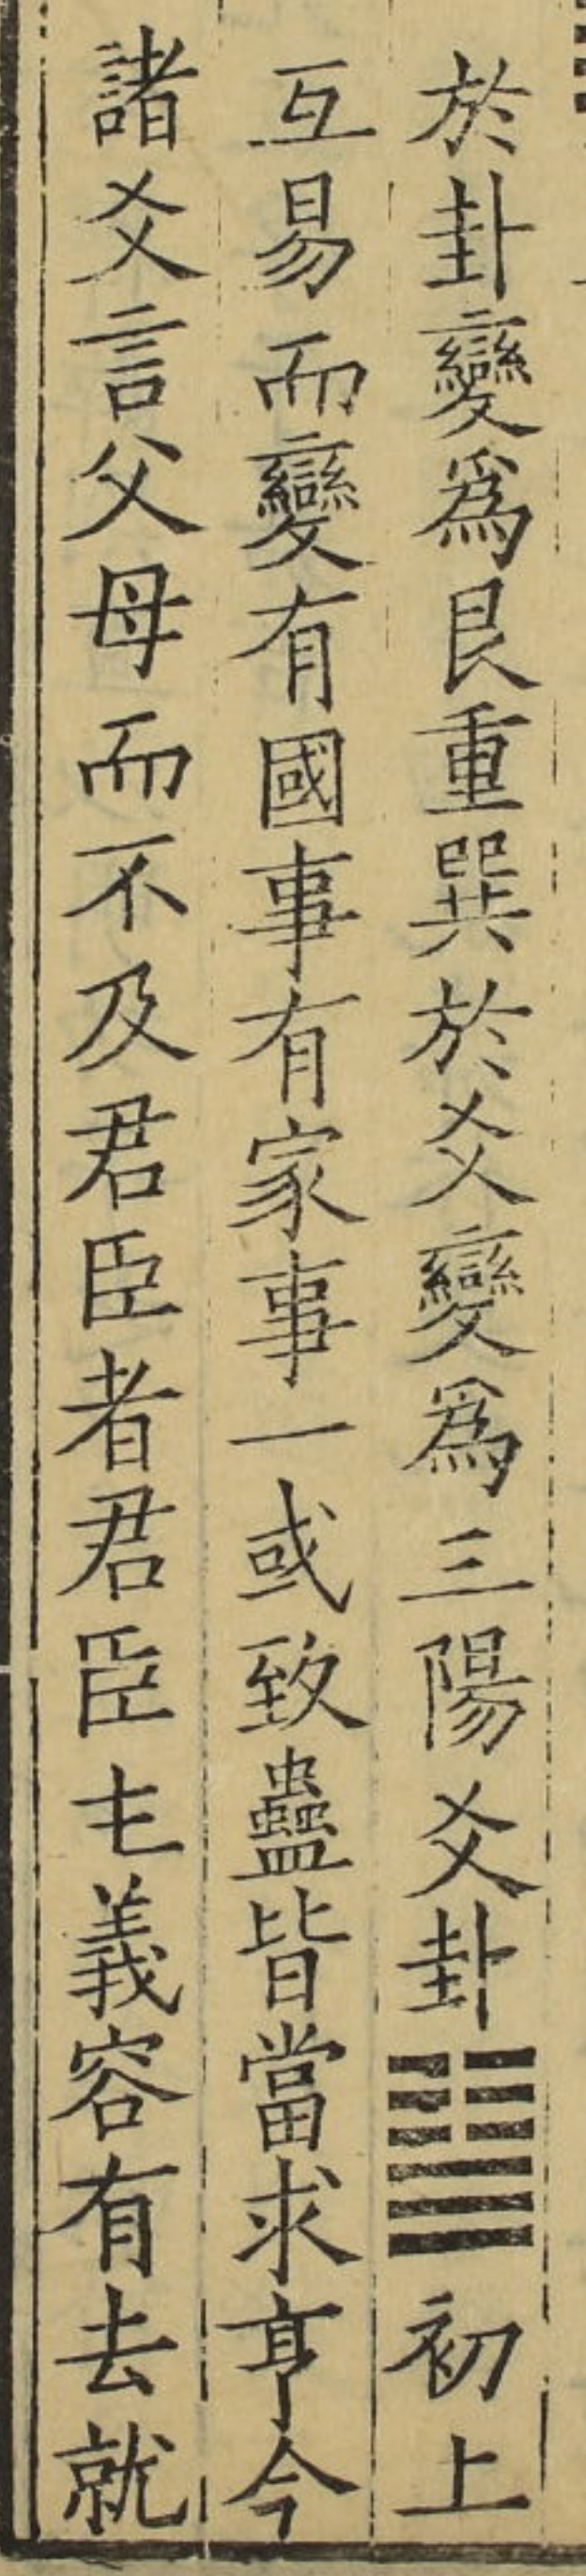 於卦變爲艮重巽於爻變爲三陽爻卦䷊初上
互易而變有國事有家事一或致蠱皆當求亨今
諸爻言父母而不及君臣者君臣主義容有去就